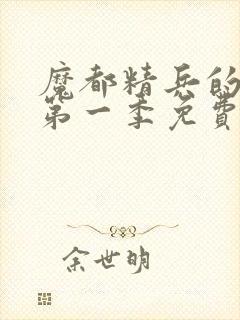 魔都精兵的
第一季免費
余世明